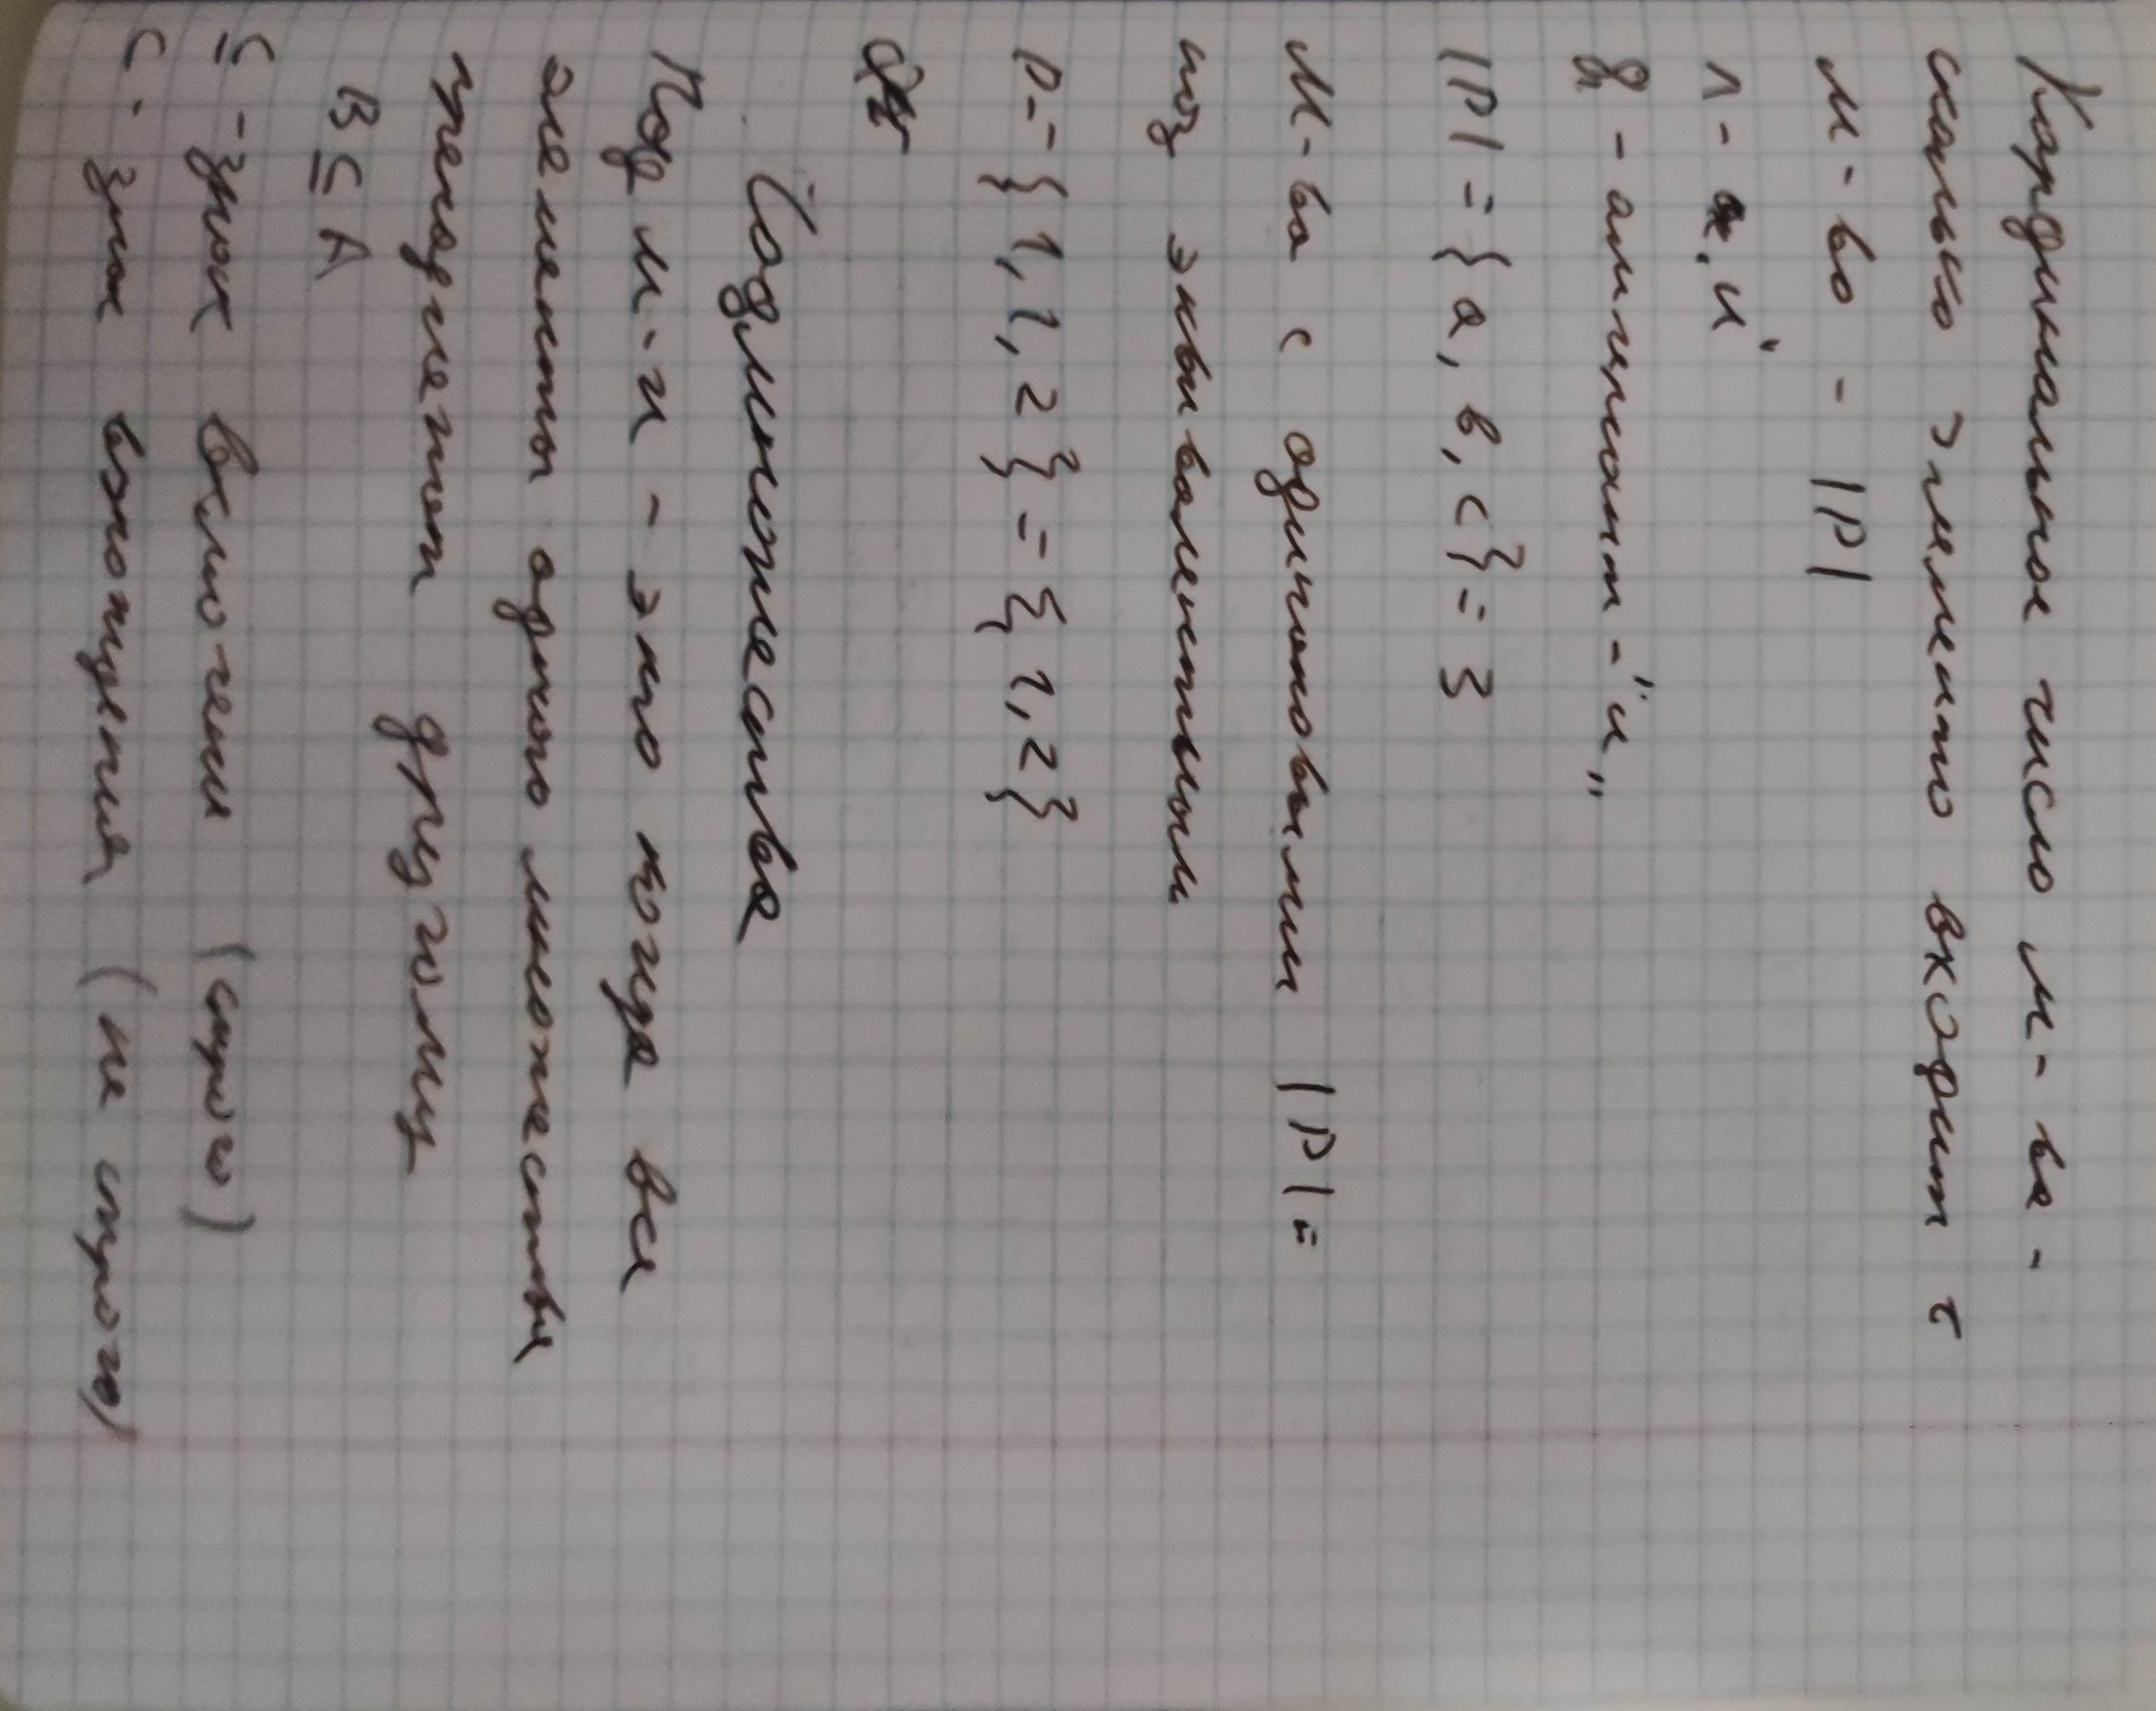 Кардинальное число м-ва -
сколько элементо входит в
м-во - |P|
Λ - "и"
& - амперсант - "и„
|P| = {a, в, c} = 3
М-ва с одинаковыми |P| =
наз эквивалентным
P = {1, 1, 2} = {1, 2}
Подмножества
Под м-и - это когда все
элементы одного множества
другому
B ⊆ A
⊆ - знак включени (строго)
⊂ - знак вхождения (не строго)